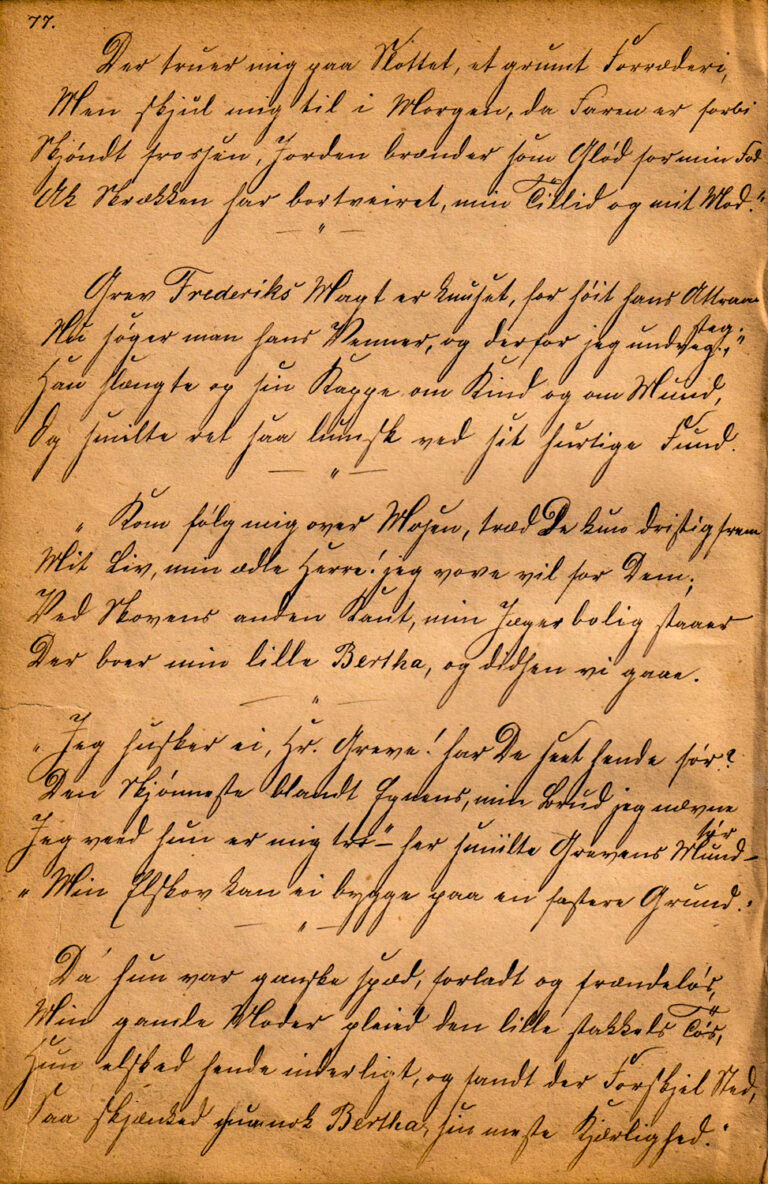 77.
Der truer mig paa Slottet, et grumt Forræderi,
Men skjul mig til i Morgen, da Faren er forbi
Skjöndt frossen, Jorden brænder som Glöd for min Fod
Ak Skrækken har bortveiret, min Tillid og mit Mod."
— " —
Grev Frederiks Magt er knuset, for höit hans Attraa
steg.
Nu söger man hans Venner, og derfor jeg undveg.,"
Han slængte op sin Kappe om Kind og om Mund,
Og smilte ret saa lumsk ved sit hurtige Fund.
— " —
"Kom fölg mig over Mosen, træd De kun dristig frem
Mit Liv, min ædle Herre! jeg vove vil for Dem;
Ved Skovens anden Kant, min Jægerbolig staaer
Der boer min lille Bertha, og didhen vi gaae.
— " —
"Jeg husker ei, Hr. Greve! har De seet hende för?
Den Skjönneste blandt Egnens, min Brud jeg nævne
tör
Jeg veed hun er mig tro—" her smilte Grevens Mund—
"Min Elskov kan ei bygge paa en fastere Grund."
— " —
Da hun var ganske spæd, forladt og frændelös,
Min gamle Moder pleied den lille stakkels Tös,
Hun elsked hende inderligt, og fandt der Forskjel Sted,
Saa skjænked nok Bertha, sin meste Kjærlighed."